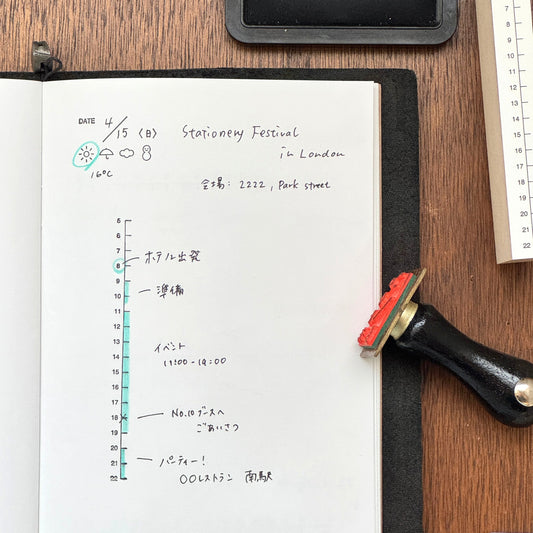 DATE 4/15 (日) Stationery Festival
in London
16°C
会場: 2222, Park street
5
6
7
8 ホテル出発
9
10 準備
11
12
13
14 イベント
15 11:00-19:00
16
17
18 No.10 ブースへ
19 ごあいさつ
20
21 パーティー!
22 〇〇レストラン 南駅
7
8
9
10
11
12
13
14
15
16
17
18
19
20
21
22